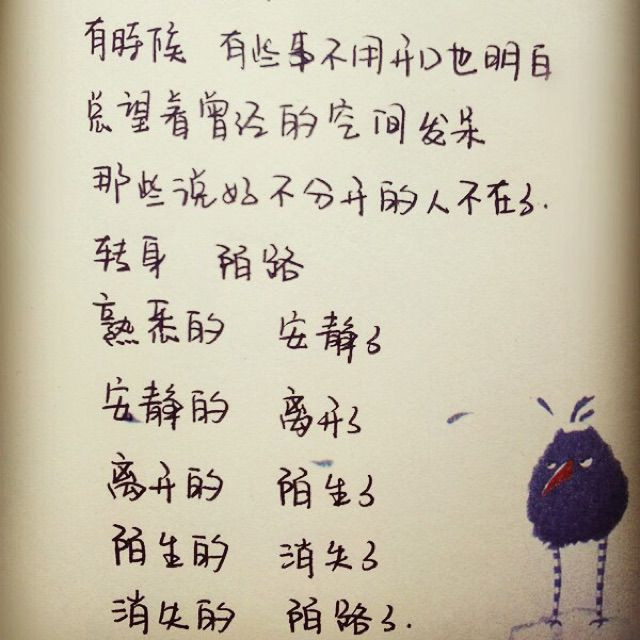 有時候 有些事不用开口也明白
总望着曾经的空间发呆
那些说好不分开的人不在了.
转身 陌路
熟悉的 安静了
安静的 离开了
离开的 陌生了
陌生的 消失了
消失的 陌路了.